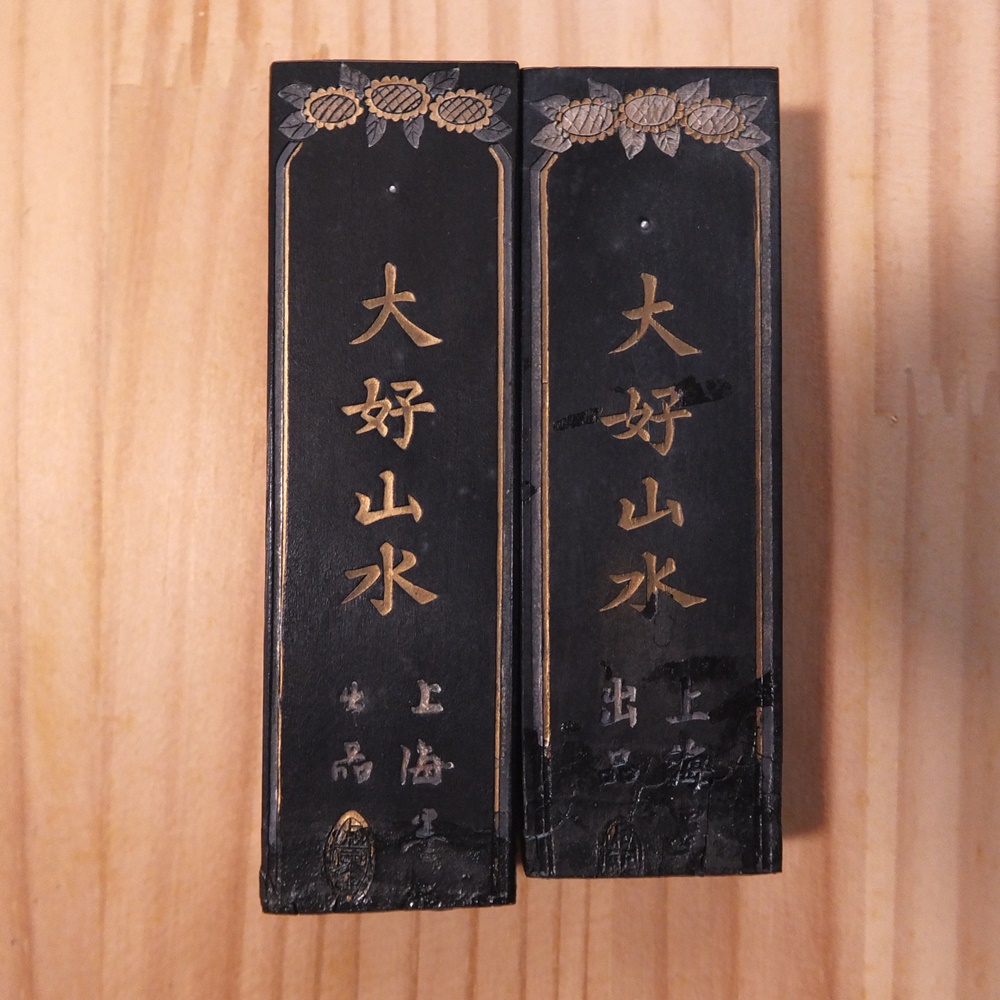 大好山水
上海墨
出品
大好山水
上海墨
出品